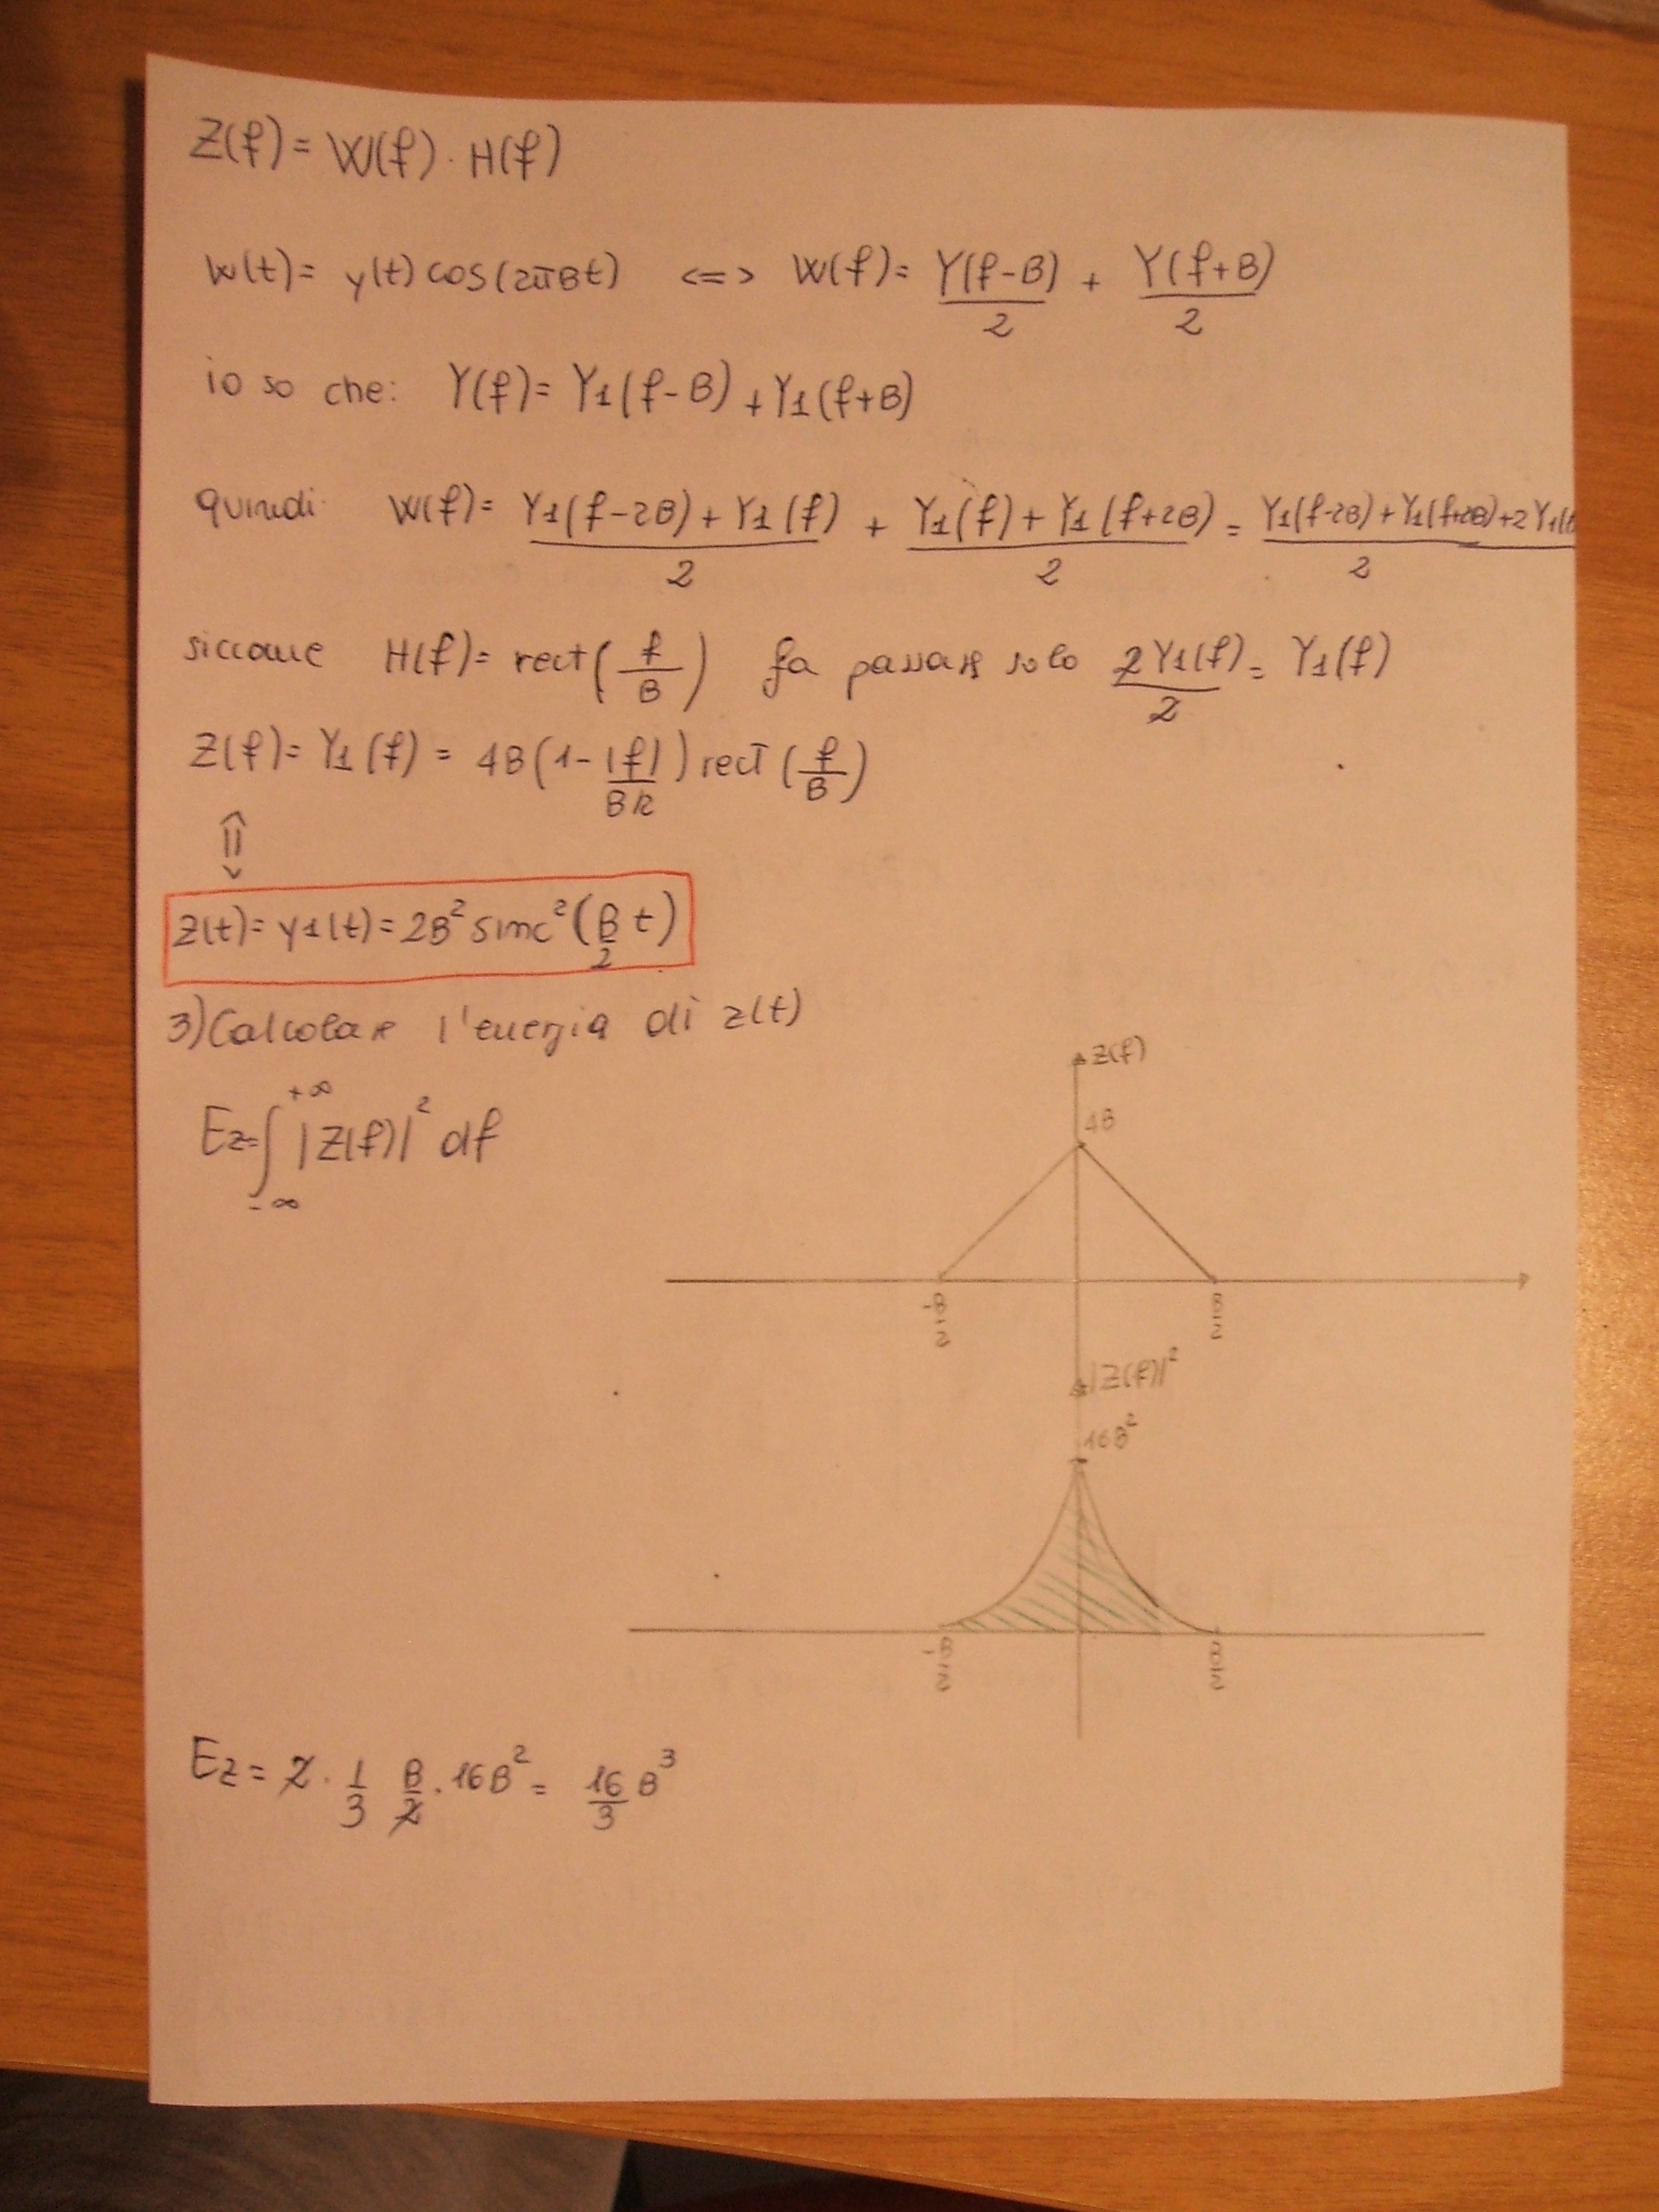 Z(f) = W(f) · H(f)
w(t) = y(t) cos(2πBt) <=> W(f) = Y(f-B)/2 + Y(f+B)/2
io so che: Y(f) = Y1(f-B) + Y1(f+B)
quindi W(f) = (Y1(f-2B) + Y1(f))/2 + (Y1(f) + Y1(f+2B))/2 = (Y1(f-2B) + Y1(f+2B) + 2Y1(f/2
siccome H(f) = rect(f/B) fa passare solo 2Y1(f)/2 = Y1(f)
Z(f) = Y1(f) = 4B(1 - |f|/B/2) rect(f/B)
⇕
z(t) = y1(t) = 2B² sinc²(B/2 t)
3) Calcolare l'energia di z(t)
Z(f)
4B
Ez = ∫ -∞ +∞ |Z(f)|² df
-B/2
B/2
|Z(f)|²
16B²
-B/2
B/2
Ez = 2 · 1/3 B/2 · 16B² = 16/3 B³